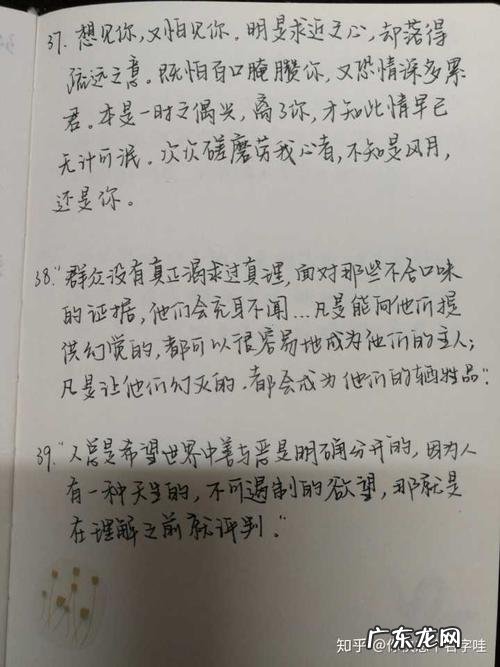 37. 想见你，又怕见你。明是求近之心，却落得
疏远之意。既怕百口腌臜你，又恐情深多累
君。本是一时之偶兴，离了你，才知此情早已
无计可泯。次次磋磨苦我心者，不知是风月，
还是你。
38."群众没有真正渴求过真理，面对那些不合口味
的证据，他们会充耳不闻…凡是能向他们提
供幻觉的，都可以很容易地成为他们的主人；
凡是让他们幻灭的，都会成为他们的牺牲品"
39."人总是希望世界中善与恶是明确分开的，因为人
有一种天生的，不可遏制的欲望，那就是
在理解之前就评判。"
知乎
广东龙网